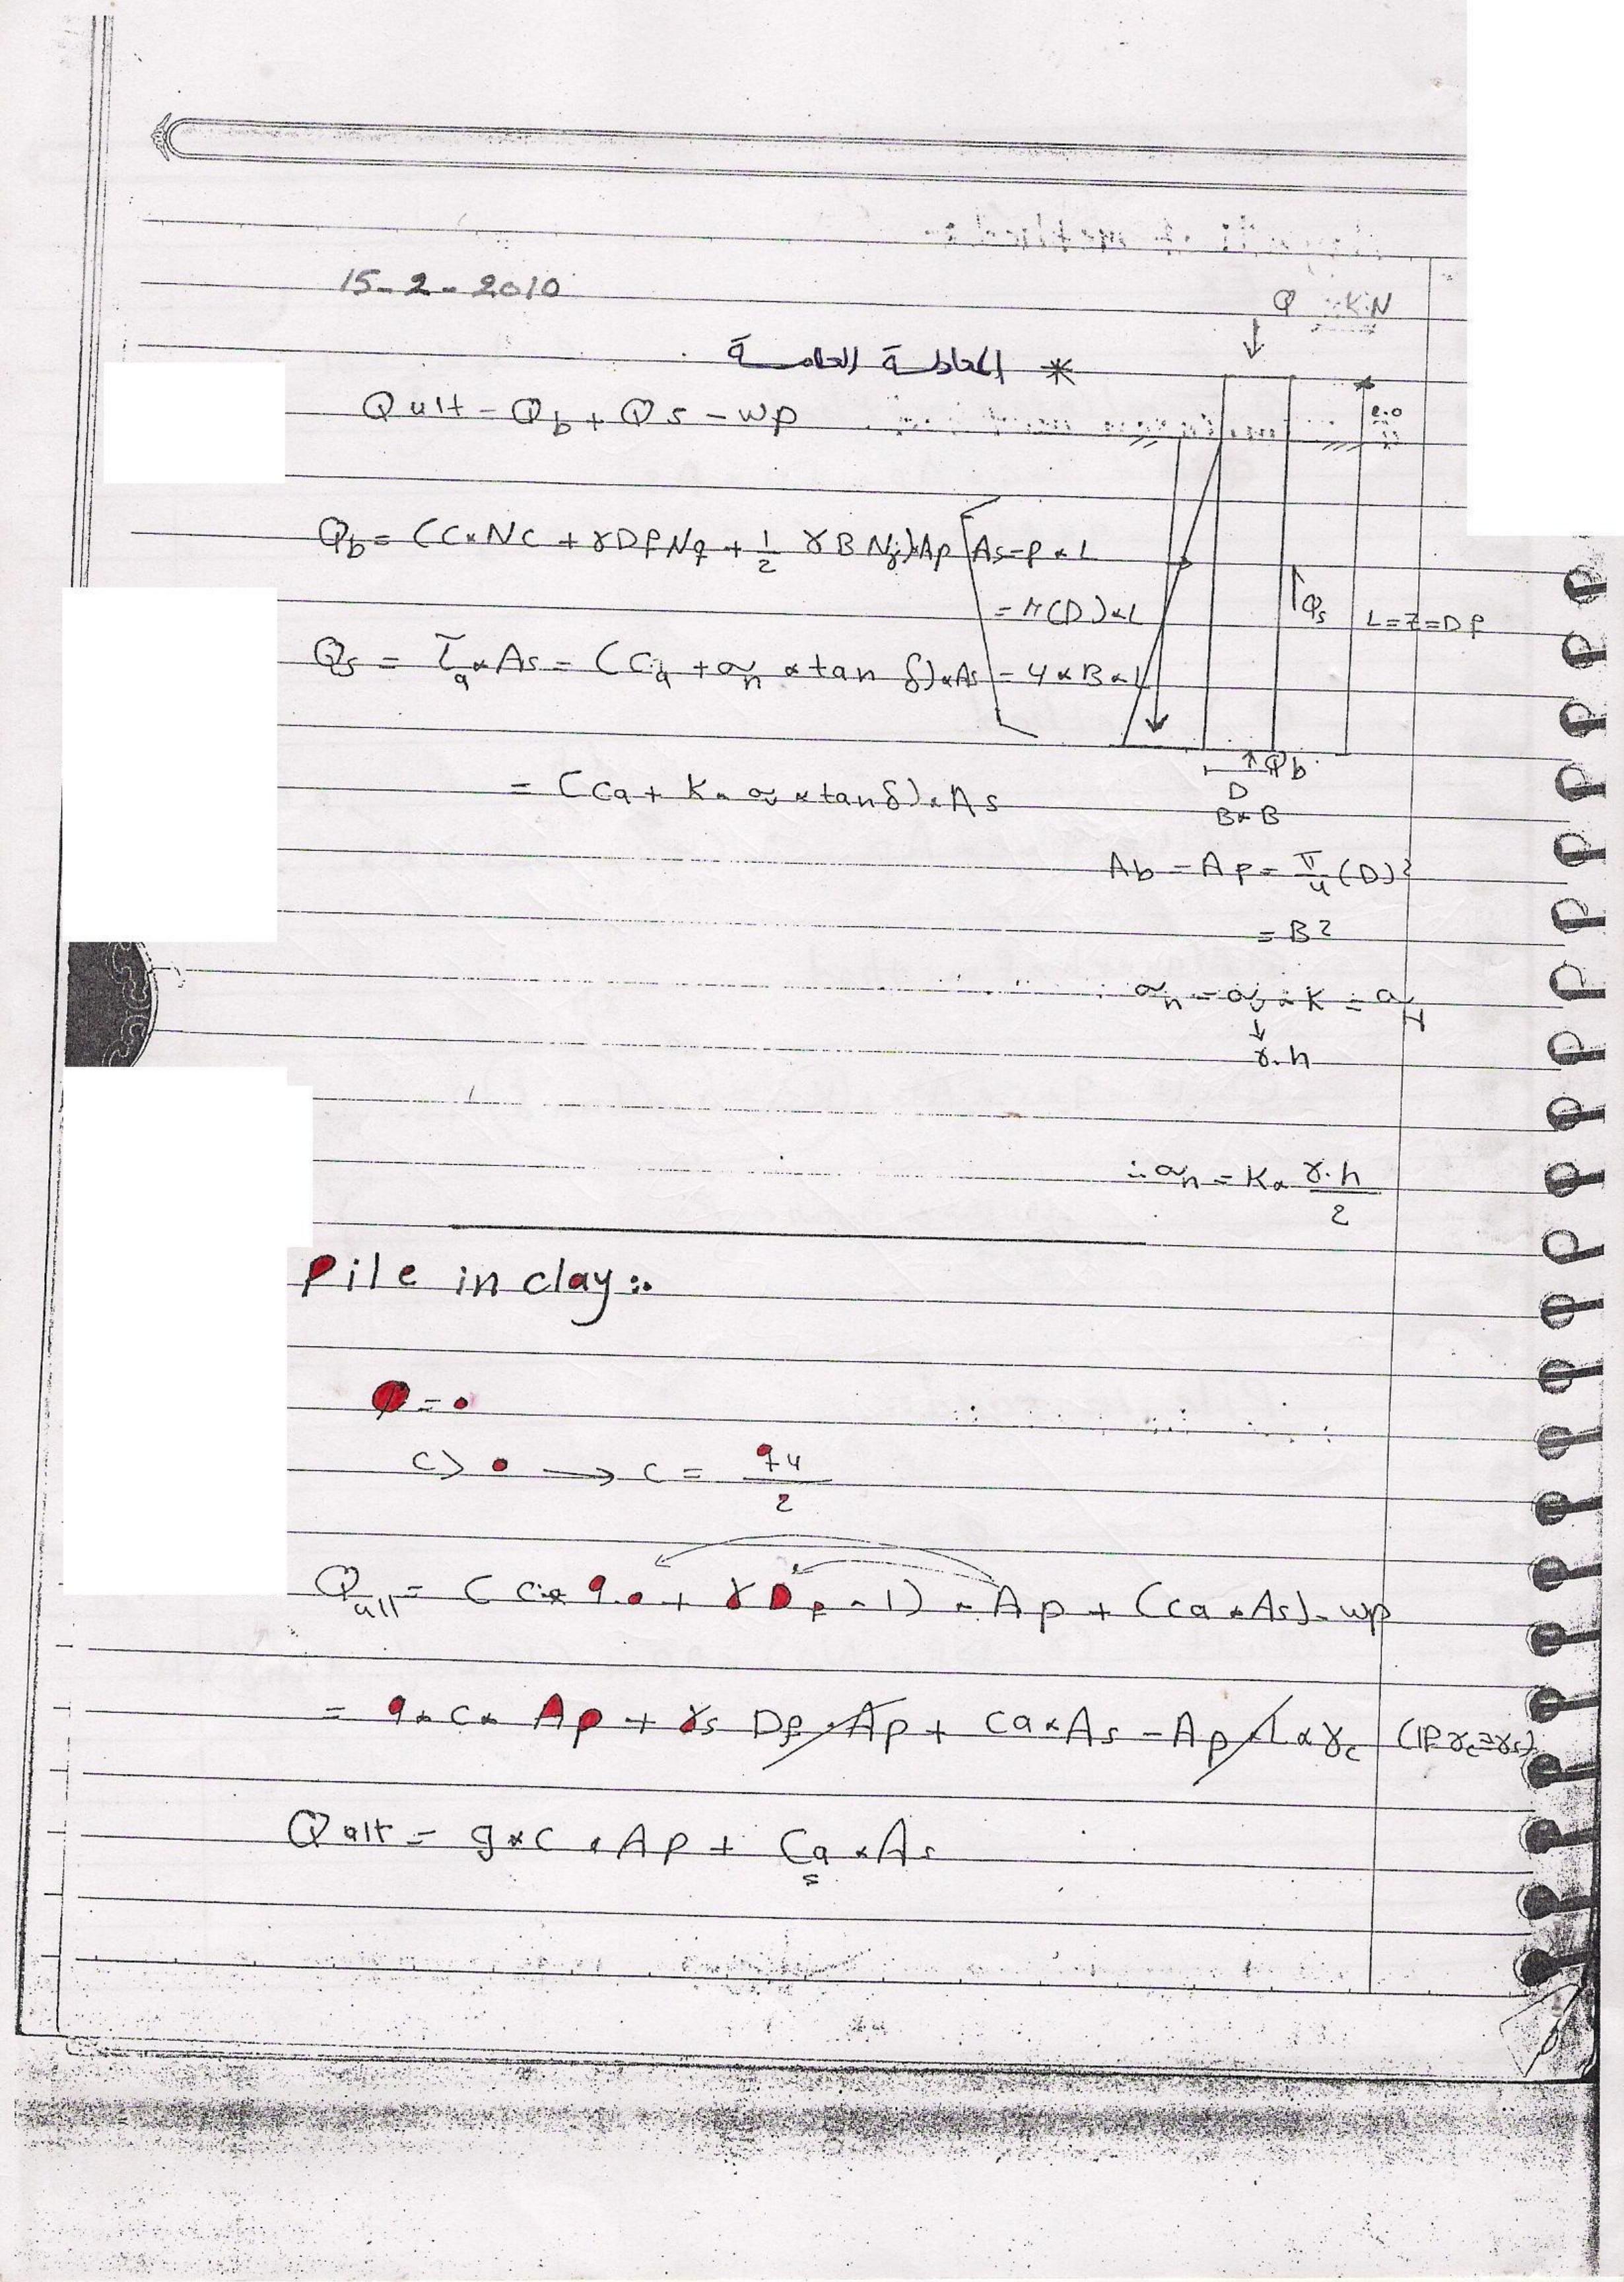 15-2-2010
Q KN
* المعادلة العامة
Qult = Qb + Qs - wp
2.0
Qb = (C×NC + γDfNq + 1/2 γBNγ)×Ap
As = P×L
= π(D)×L
= 4×B×L
Qs
L=Z=Df
Qs = τa×As = (Ca + σn × tan δ)×As
Qb
D
B×B
= (Ca + K × σv × tan δ)×As
Ab = Ap = π/4 (D)2
= B2
σn = σv × K = σH
↓
γ.h
∴ σn = K× γ.h/2
Pile in clay:.
φ = 0
C > 0 → C = qu/2
Qult = (C× 9.0 + γDf × 1) × Ap + (Ca × As) - wp
= 9×C× Ap + γs Df × Ap + Ca×As - Ap × L × γc (IF γc=γs)
Qult = 9×C × Ap + Ca × As
s